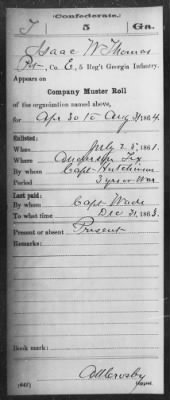 Confederate.
T | 5 | Ga.
Isaac W Thomas
Pvt, Co. E, 5 Reg't Georgia Infantry.
Appears on
Company Muster Roll
of the organization named above,
for Apr 30 to Aug 31, 1864.
Enlisted:
When July 25, 1861.
Where
By whom Capt Hutchinson
Period 3 yrs or War
Last paid:
By whom Capt Wade
To what time Dec 31, 1863.
Present or absent Present
Remarks:
Book mark:
(642)
Copyist.